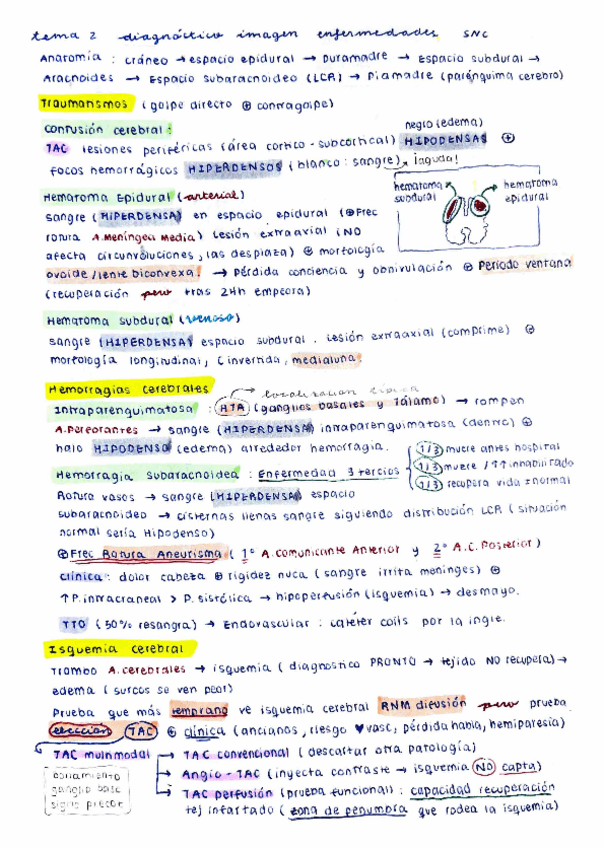 tema 2 diagnóstico imagen enfermedades SNC
Anatomía : cráneo → espacio epidural → Duramadre → Espacio subdural →
Aracnoides → Espacio subaracnoideo (LCR) → Piamadre (parénquima cerebro)
Traumanismos (golpe directo ⊕ contragolpe)
Contusión cerebral :
negro (edema)
TAC lesiones periféricas (área cortico-subcortical) HIPODENSAS ⊕
focos hemorrágicos HIPERDENSOS (blanco: sangre) → ¡aguda!
Hematoma Epidural (arterial)
hematoma subdural
hematoma epidural
sangre (HIPERDENSA) en espacio epidural (⊕Frec
rotura A.Meníngea Media) Lesión extraaxial (NO
afecta circunvoluciones, las desplaza) ⊕ morfología
ovoide/lente biconvexa! → Pérdida conciencia y obnivulación ⊕ Período ventana
(recuperación pero tras 24h empeora)
Hematoma subdural (venoso)
sangre (HIPERDENSA) espacio subdural . Lesión extraaxial (comprime) ⊕
morfología longitudinal, C invertida, medialuna.
Hemorragias cerebrales
localización típica
Intraparenquimatosa : HTA (ganglios basales y Tálamo) → rompen
A.Perforantes → sangre (HIPERDENSA) intraparenquimatosa (dentro) ⊕
halo HIPODENSO (edema) alrededor hemorragia.
Hemorragia subaracnoidea : Enfermedad 3 tercios
1/3 muere antes hospital
1/3 muere / ↑↑ inhabilitado
1/3 recupera vida ± normal
Rotura vasos → sangre (HIPERDENSA) espacio
subaracnoideo → cisternas llenas sangre siguiendo distribución LCR (situación
normal sería Hipodenso)
⊕Frec Rotura Aneurisma (1º A.Comunicante Anterior y 2º A.C.Posterior)
clínica : dolor cabeza ⊕ rigidez nuca (sangre irrita meninges) ⊕
↑P.intracraneal > P.sistólica → hipoperfusión (isquemia) → desmayo.
TTO (50% resangra) → Endovascular : catéter coils por la ingle.
Isquemia cerebral
Trombo A.cerebrales → isquemia (diagnostico PRONTO → tejido NO recupera) →
edema (surcos se ven peor)
Prueba que más temprano ve isquemia cerebral RNM difusión pero prueba
elección TAC ⊕ clínica (ancianos, riesgo ♥vasc, pérdida habla, hemiparesia)
TAC multimodal → TAC convencional (descartar otra patología)
→ Angio-TAC (inyecta contraste → isquemia NO capta)
→ TAC perfusión (prueba funcional) : capacidad recuperación
tej infartado (zona de penumbra que rodea la isquemia)
ganglio basc
signo precoz